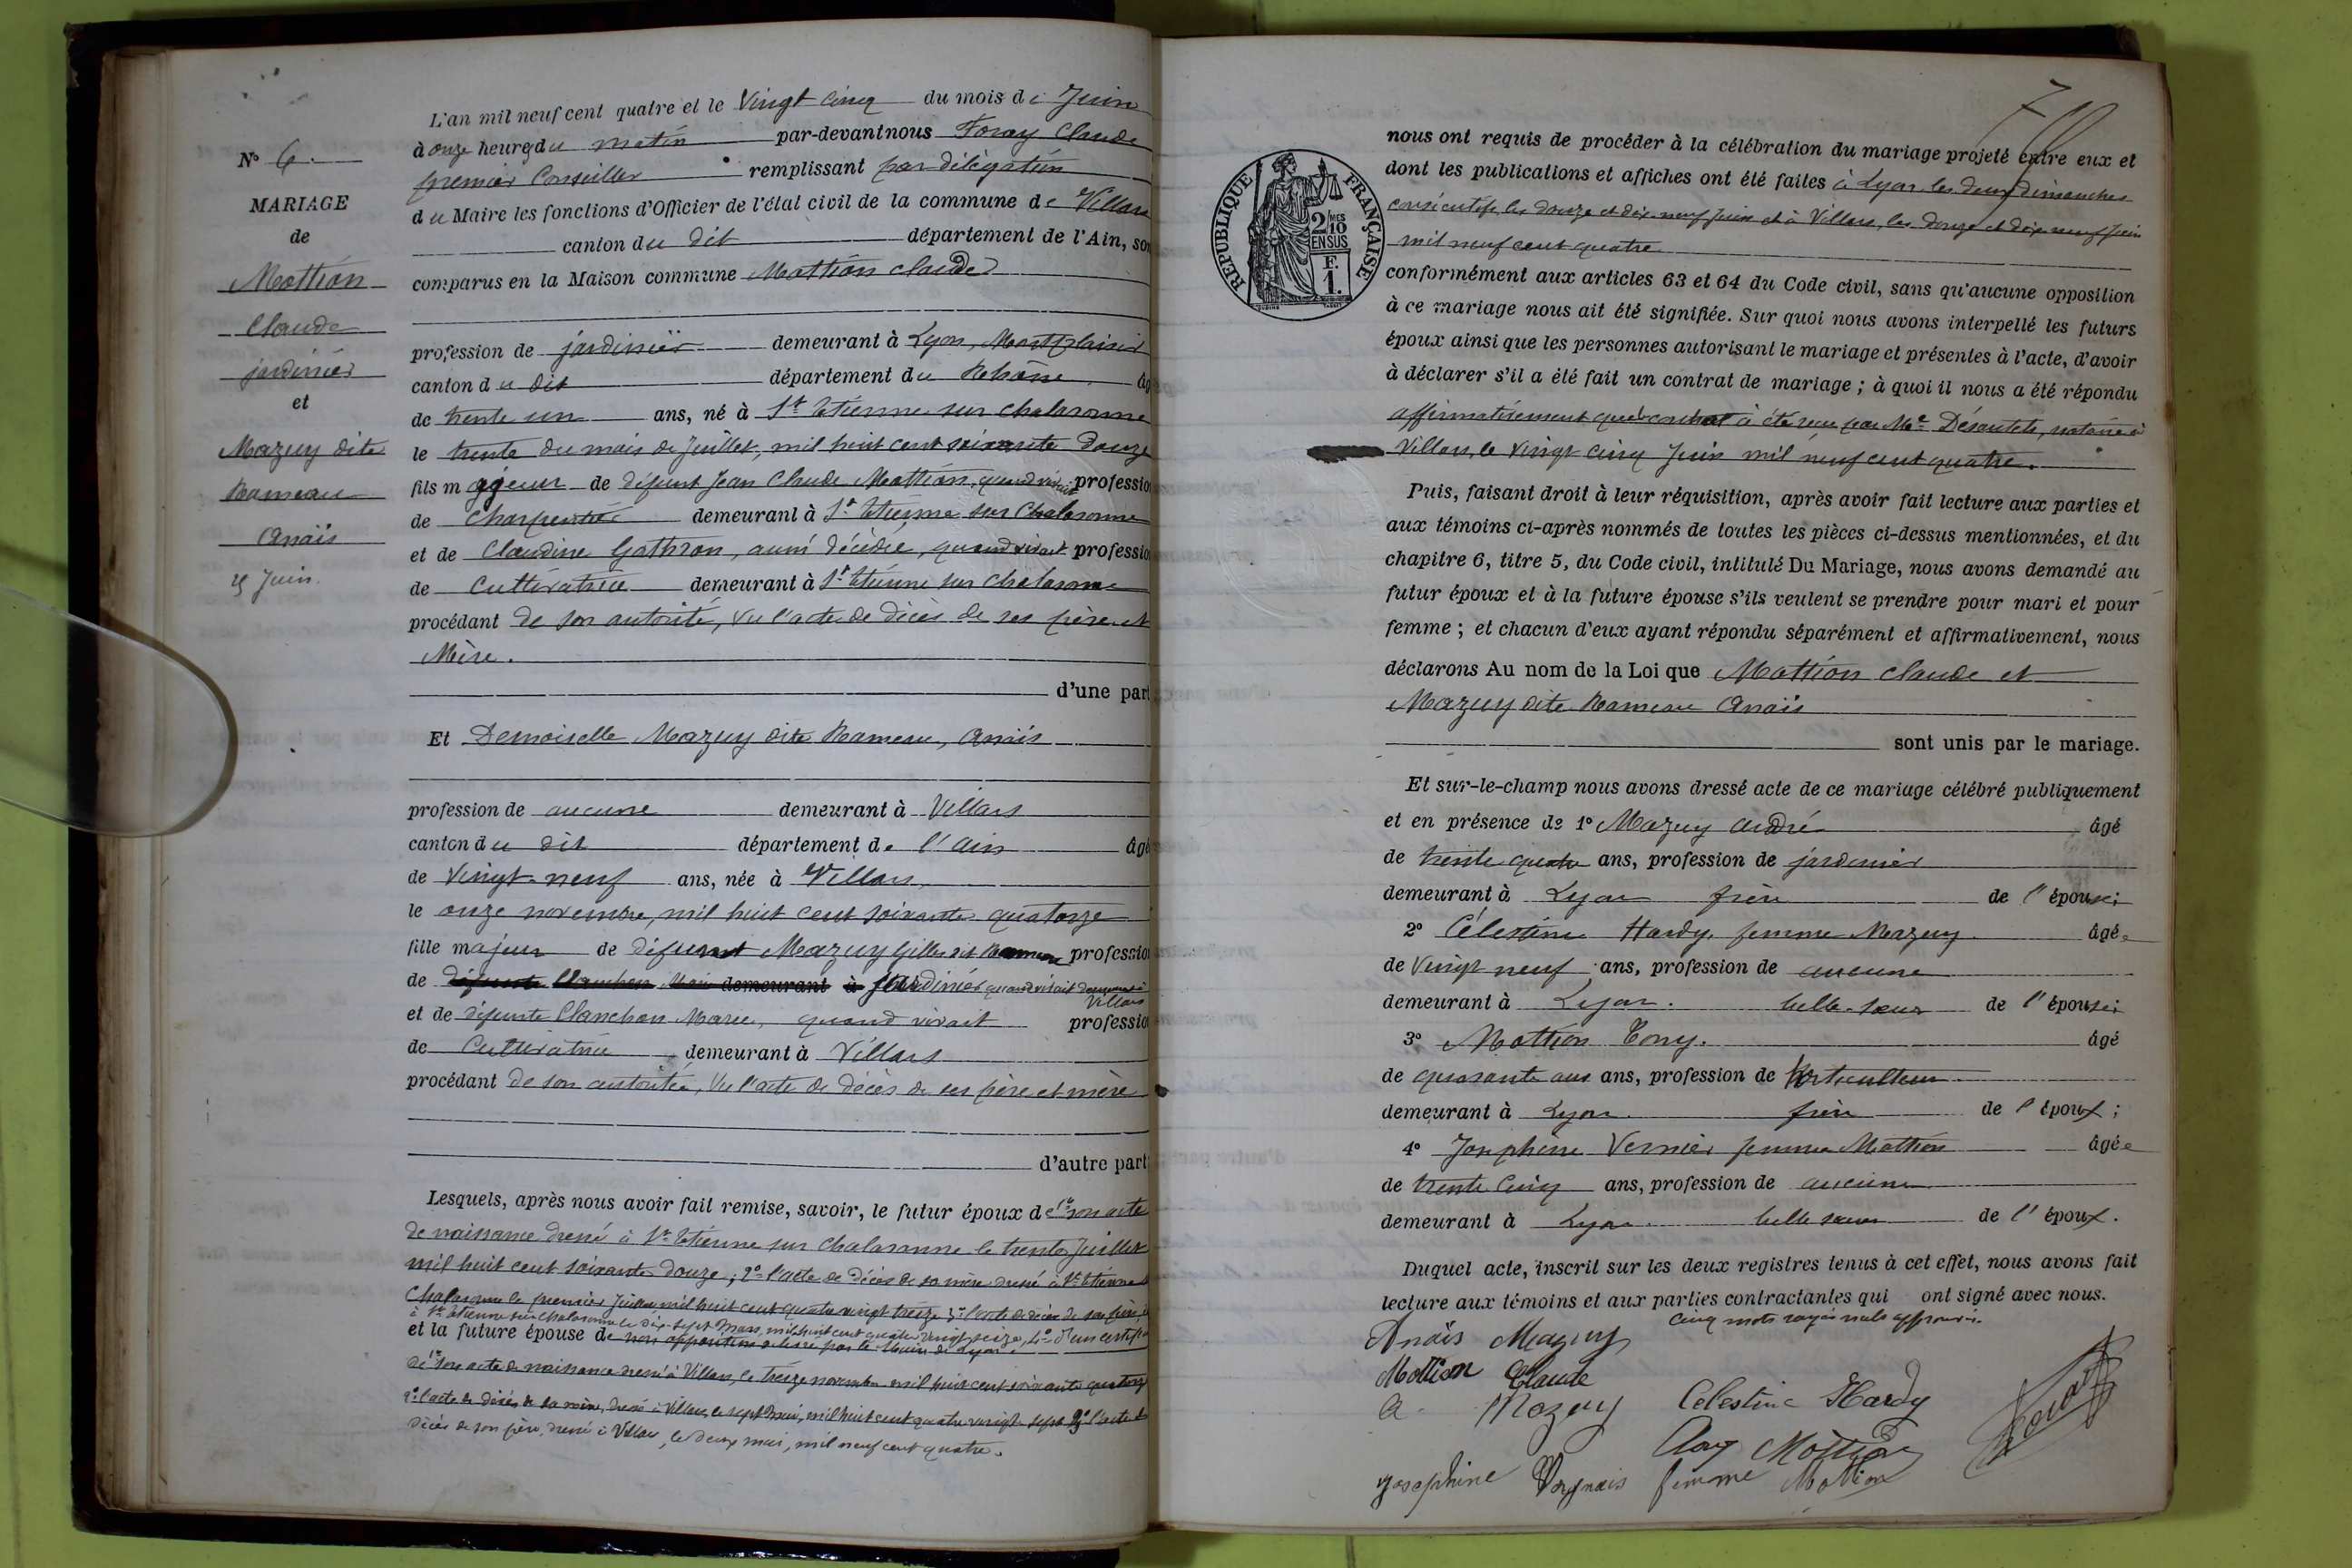 N° 6.
MARIAGE
de
Mottion
Claude
jardinier
et
Mazuy dite
Rameau
Anaïs
25 Juin.
L'an mil neuf cent quatre et le Vingt cinq du mois de Juin
à onze heures du matin par-devant nous Foray Claude
premier Conseiller remplissant par délégation
du Maire les fonctions d'Officier de l'état civil de la commune de Villars
canton du dit département de l'Ain, son
comparus en la Maison commune Mottion Claude
profession de jardinier demeurant à Lyon, Montplaisir
canton du dit département du Rhône âg
de trente un ans, né à St Etienne sur Chalaronne
le trente du mois de Juillet, mil huit cent soixante douze
fils majeur de défunt Jean Claude Mottion, quand vivait profession
de Charpentier demeurant à St Etienne sur Chalaronne
et de Claudine Gathron, aussi décédée, quand vivait profession
de Cultivatrice demeurant à St Etienne sur Chalaronne
procédant de son autorité, vu l'acte de décès de ses père et
Mère.
d'une part
Et Demoiselle Mazuy dite Rameau, Anaïs
profession de aucune demeurant à Villars
canton du dit département de l'Ain âgé
de Vingt-neuf ans, née à Villars
le onze novembre, mil huit cent soixante quatorze
fille majeur de défunt Mazuy Gilles dit Rameau profession
de défunte Clanchon Marie demeurant à Jardinier quand vivait demeurant à
Villars
et de défunte Clanchon Marie, quand vivait profession
de Cultivatrice demeurant à Villars
procédant de son autorité, Vu l'acte de décès de ses père et mère
d'autre part
Lesquels, après nous avoir fait remise, savoir, le futur époux de 1° son acte
de naissance dressé à St Etienne sur Chalaronne le trente Juillet
mil huit cent soixante douze; 2° l'acte de décès de sa mère dressé à St Etienne s
Chalaronne le premier Juillet mil huit cent quatre vingt treize 3° l'acte de décès de son père,
à St Etienne sur Chalaronne le dix-sept Mars, mil huit cent quatre vingt seize, 4° d'un certific
et la future épouse de non opposition délivré par le Maire de Lyon.
de 1° son acte de naissance dressé à Villars, le treize novembre mil huit cent soixante quatorze
2° l'acte de décès de sa mère, dressé à Villars, le sept Mai, mil huit cent quatre vingt sept 3° l'acte de
décès de son père, dressé à Villars, le deux mai, mil neuf cent quatre.
7
REPUBLIQUE FRANÇAISE
2 MES
10
EN SUS
F.
1.
nous ont requis de procéder à la célébration du mariage projeté entre eux et
dont les publications et affiches ont été faites à Lyon les deux dimanches
consécutifs, les douze et dix-neuf Juin et à Villars, les douze et dix neuf Juin
mil neuf cent quatre
conformément aux articles 63 et 64 du Code civil, sans qu'aucune opposition
à ce mariage nous ait été signifiée. Sur quoi nous avons interpellé les futurs
époux ainsi que les personnes autorisant le mariage et présentes à l'acte, d'avoir
à déclarer s'il a été fait un contrat de mariage ; à quoi il nous a été répondu
affirmativement que le contrat à été reçu par Me Désautels, notaire à
Villars, le vingt cinq Juin mil neuf cent quatre.
Puis, faisant droit à leur réquisition, après avoir fait lecture aux parties et
aux témoins ci-après nommés de toutes les pièces ci-dessus mentionnées, et du
chapitre 6, titre 5, du Code civil, intitulé Du Mariage, nous avons demandé au
futur époux et à la future épouse s'ils veulent se prendre pour mari et pour
femme ; et chacun d'eux ayant répondu séparément et affirmativement, nous
déclarons Au nom de la Loi que Mottion Claude et
Mazuy dite Rameau Anaïs
sont unis par le mariage.
Et sur-le-champ nous avons dressé acte de ce mariage célébré publiquement
et en présence de 1° Mazuy André âgé
de trente quatre ans, profession de jardinier
demeurant à Lyon frère de l'épouse;
2° Célestine Hardy, femme Mazuy âgée
de Vingt neuf ans, profession de aucune
demeurant à Lyon. belle-sœur de l'épouse;
3° Mottion Tony. âgé
de quarante ans ans, profession de horticulteur
demeurant à Lyon. frère de l'époux;
4° Joséphine Vernier femme Mottion âgée
de trente cinq ans, profession de aucune
demeurant à Lyon. belle sœur de l'époux.
Duquel acte, inscrit sur les deux registres tenus à cet effet, nous avons fait
lecture aux témoins et aux parties contractantes qui ont signé avec nous.
Cinq mots rayés nuls approuvés.
Anaïs Mazuy
Mottion Claude
A. Mazuy Celestine Hardy
Mottion Foray
Josephine femme Mottion